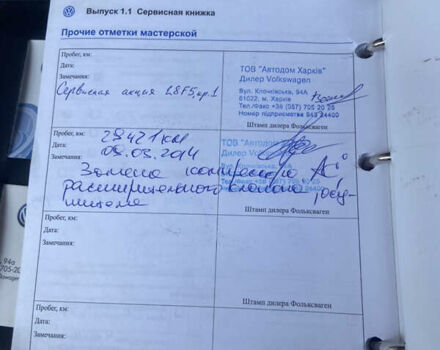 Выпуск 1.1 Сервисная книжка
Прочие отметки мастерской
Пробег, км:
Дата:
Замечания:
Сервисная акция
ТОВ "Автодом Харків"
Дилер Volkswagen
Вул. Клочківська, 94А
61022, м. Харків
Тел./Факс +38 (057) 705 20 25
Номер підприємства 943 24400
Штамп дилера Фольксваген
Пробег, км: 29421 км
Дата: 09.03.2014
Замечания:
Замена
расширительного клапана, осу-
шителя
ТОВ "Автодом
Дилер Volkswagen
Штамп дилера Фольксваген
Пробег, км:
Дата:
Замечания:
Штамп дилера Фольксваген
Пробег, км:
Дата:
Замечания:
Штамп дилера Фольксваген
94а
705-20